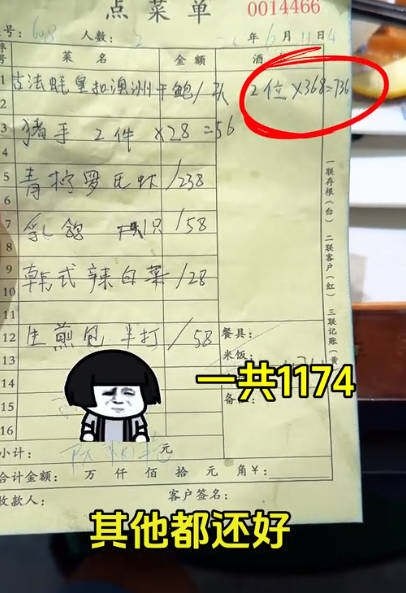 点菜单 0014466
人数:
菜名 金额
1 古法蚝皇扣澳洲干鲍 2位×368=736
2
3 猪手 2件 ×28=56
4
5 青柠罗氏虾/238
6
7 乳鸽 1只/58
8
9 韩式辣白菜/28
10
11
12 生煎包 半打/58 餐具:
米饭:
14 一共1174
15
16
小计: 元
合计金额: 万 仟 佰 拾 元 角¥:
收款人: 客户签名:
一联存根(白) 二联客户(红) 三联记账(黄
其他都还好